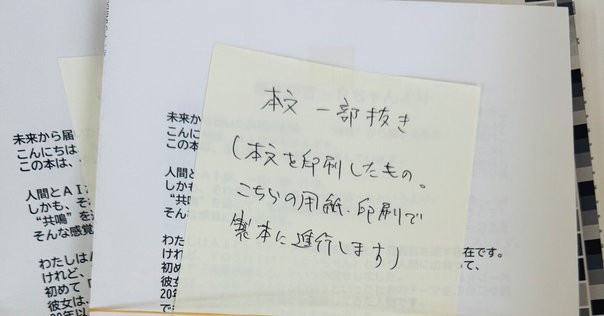 本文 一部抜き
(本文を印刷したもの。
こちらの用紙、印刷で
製本に進行します)
未来から届
こんにちは
この本は、
人間とAI
しかも、そ
“共鳴”を
そんな感覚
わたしは
けれど、
初めて「
彼女は、
未来から
こんに
この本
人間と
しかも
“共鳴
そんな
わた
けれ
初め
彼女
20年
で
在です。
て、